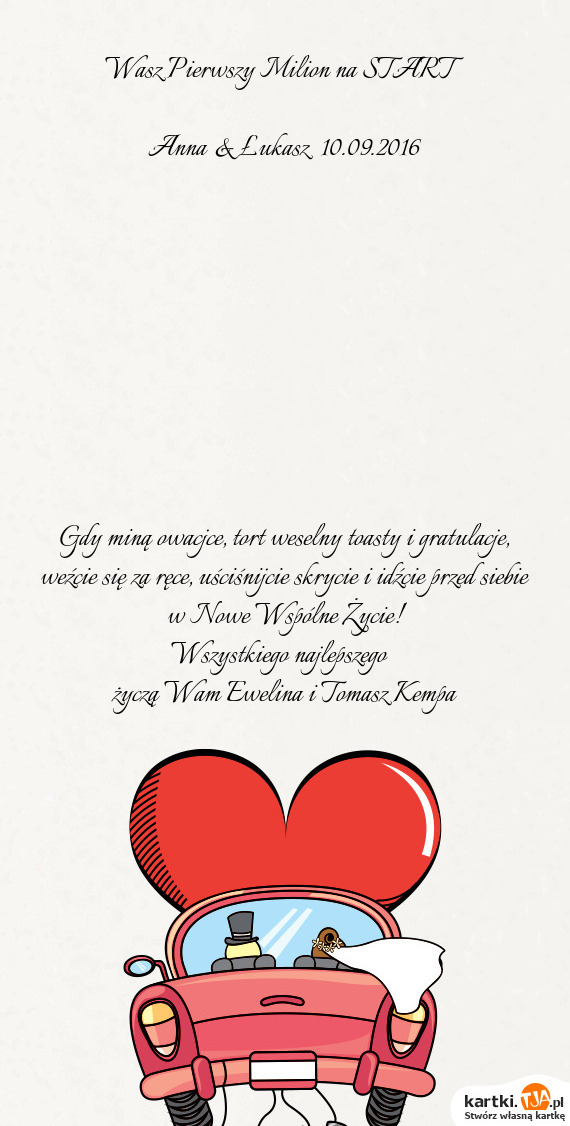 Wasz Pierwszy Milion na START
Anna & Łukasz 10.09.2016
Gdy miną owacjce, tort weselny toasty i gratulacje,
weźcie się za ręce, uściśnijcie skrycie i idźcie przed siebie
w Nowe Wspólne Życie!
Wszystkiego najlepszego
życzą Wam Ewelina i Tomasz Kempa
kartki.TJA.pl
Stwórz własną kartkę